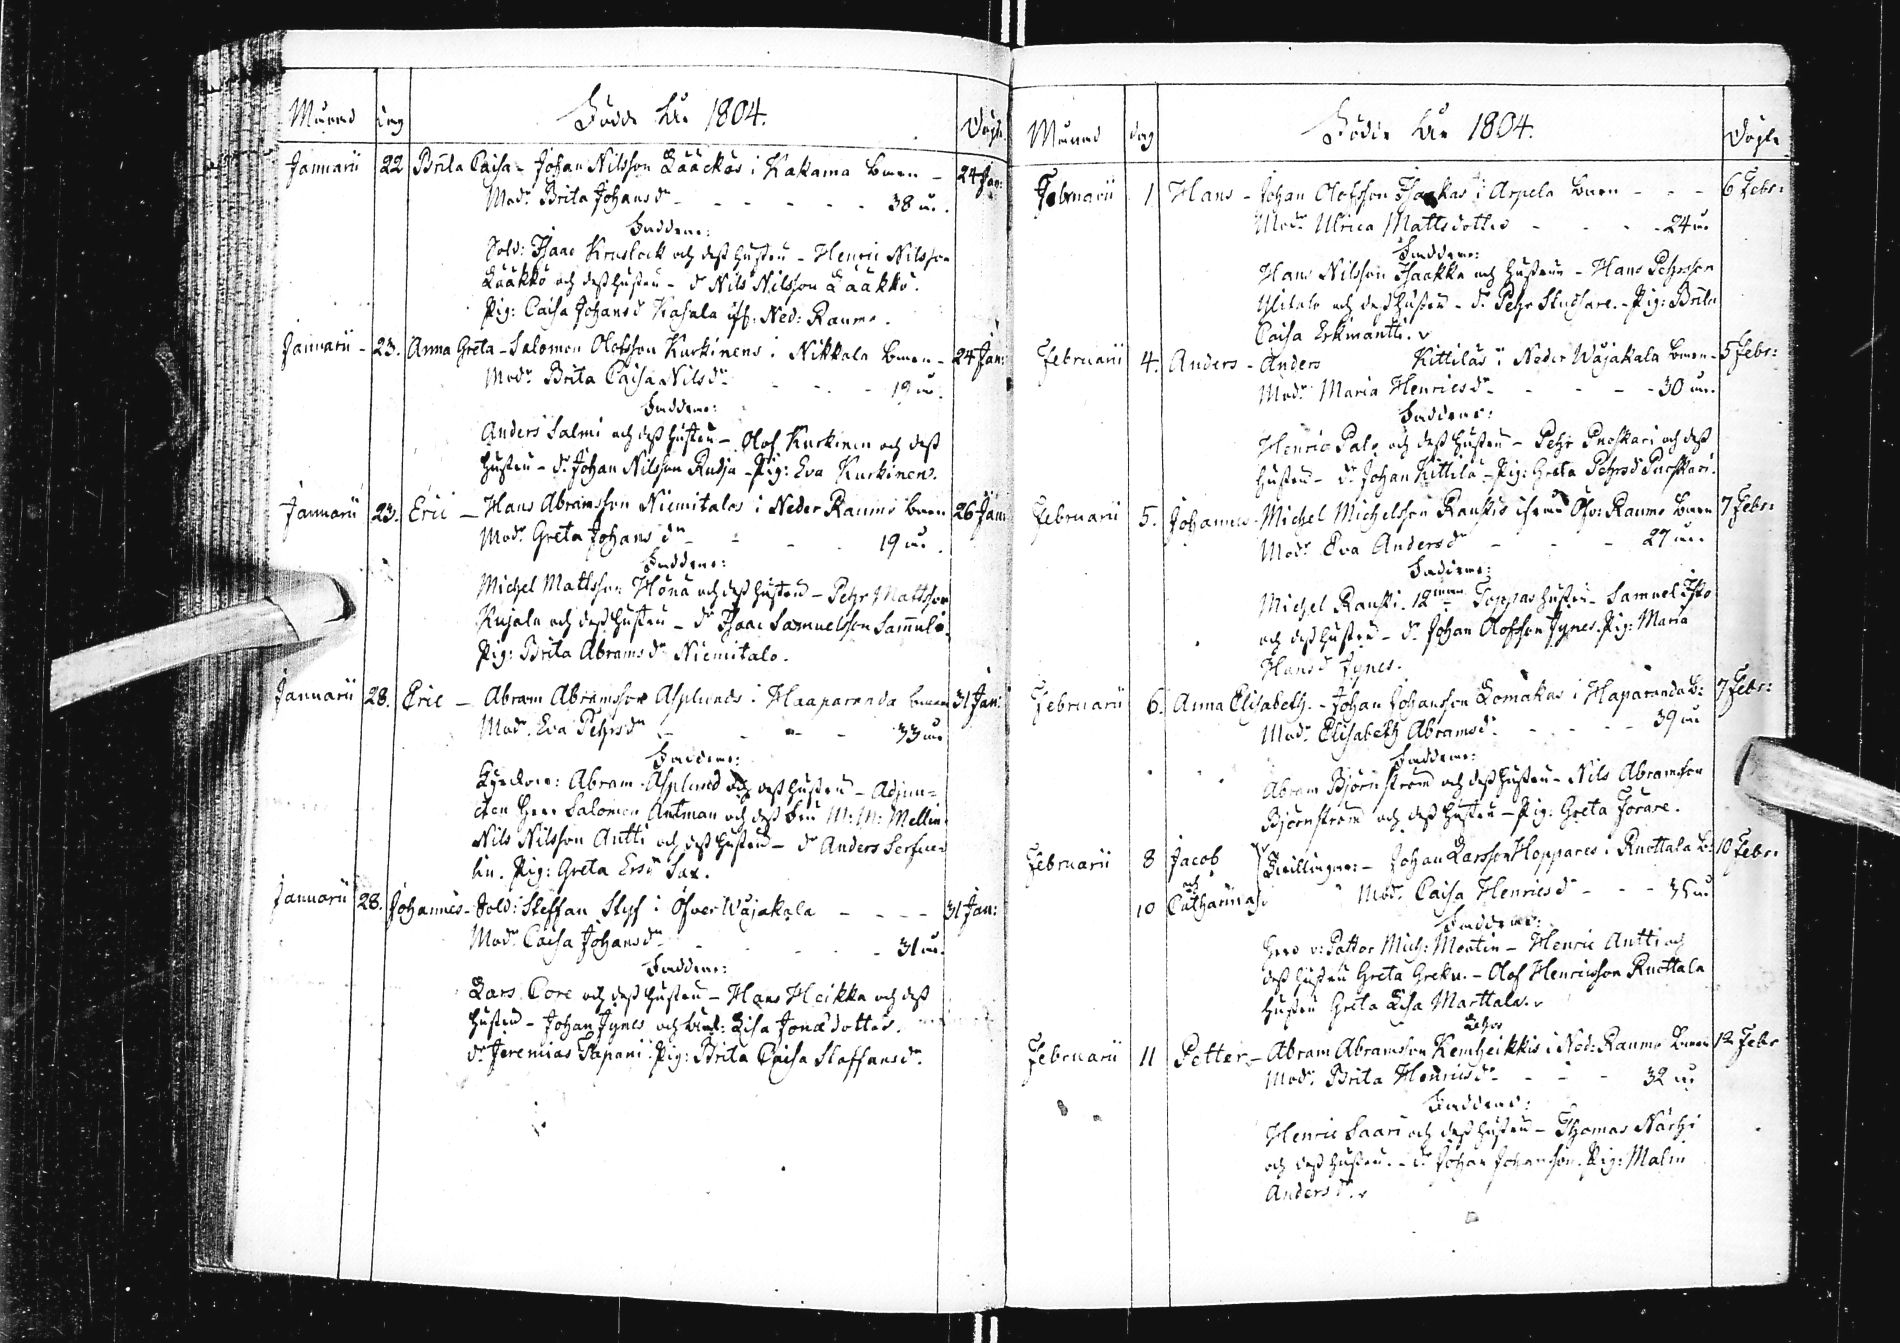 Månad Dag Födde Åhr 1804. Döpte
Januarii 22 Brita Caisa - Johan Nilsson Lääckös i Kakama barn - 24 Jan:
Modr. Brita Johansdr - - - - - 38 år.
Faddrar:
Sold: Isaac Kruslock och dess hustru - Henric Nilsson
Lääkkö och dess hustru - d. Nils Nilsson Lääkkö.
Pig: Caisa Johansd Kasala ifr: Ned: Raumo.
Januarii - 23. Anna Greta - Salomon Olofsson Kurkinens i Nikkala barn - 24 Jan:
Modr. Brita Caisa Nilsdr - - - 19 år.
Faddrar:
Anders Salmi och dess hustru - Olof Kurkinen och dess
hustru - d. Johan Nilsson Rudja - Pig: Eva Kurkinen.
Januarii 23. Eric - Hans Abramsson Niemitalos i Neder Raumo barn 26 Jan:
Modr. Greta Johansdr - - - 19 år.
Faddrar:
Michel Mattsson Hona och dess hustru - Pehr Mattsson
Kujala och dess hustru - d. Isaac Samuelsson
Pig: Brita Abramsdr Niemitalo.
Januarii 28. Eric - Abram Abramsson Asplunds i Haaparanda barn 31 Jan:
Modr. Eva Pehrsdr - - - - 33 år
Faddrar:
Abram Asplund och dess hustru - Adjun=
cten Herr Salomon Antman och dess Fru M: M: Mellin.
Nils Nilsson Antti och dess hustru - d. Anders
Pig: Greta Ersd Sax.
Januarii 28. Johannes - Sold: Steffan Styf i Öfver Wojakala - - - - 31 Jan:
Modr. Caisa Johansdr - - - - 31 år.
Faddrar:
Lars Core och dess hustru - Hans Heikka och dess
hustru - Johan Jynes och Lisa Jonædotter.
d. Jeremias Tapani. Pig: Brita Caisa Staffansdr.
Månad Dag Födde Åhr 1804. Döpte
Februarii 1 Hans - Johan Olofsson Isakkas i Arpela barn - - - 6 Febr:
Modr. Ulrica Mattsdotter - - - - 24 år
Faddrar:
Hans Nilsson Isaakka och hustrun - Hans Pehrsson
Ylitalo och dess hustru - d. Pehr - Pig: Brita
Caisa Erkmantti.
Februarii 4. Anders - Anders Kittiläs i Neder Wojakala barn - 5 Febr:
Modr. Maria Henricsdr - - - - 30 år.
Faddrar:
Henric Palo och dess hustru - Pehr Puoskari och dess
hustru - d. Johan Kittilä - Pig: Greta Pehrsd Puoskari.
Februarii 5. Johannes - Michel Michelsson Rauskis ifrån Öfv: Raumo barn 7 Febr:
Modr. Eva Andersdr - - - 27 år.
Faddrar:
Michel Rauski. 12 Toppas hustru - Samuel Isto
och dess hustru - d. Johan Olofsson Jynes. Pig: Maria
Hansd Jynes.
Februarii 6. Anna Elisabeth. - Johan Johansson Lomakas i Haparanda b: 7 Febr:
Modr. Elisabeth Abramsd. - - - - 39 år
Faddrar:
Abram Björnström och dess hustru - Nils Abramsson
Björnström och dess hustru - Pig: Greta Jorare.
Februarii 8 Jacob Twillingar - Johan Larsson Hoppares i Ruottala b: 10 Febr:
och
10 Catharina Modr. Caisa Henricsd - - - 35 år
Faddrar:
Herr v: Pastor Mich: Montin - Henric Antti och
dess hustru Greta Greku. - Olof Henricsson Ruottala
hustru Greta Lisa Marttala.
Februarii 11 Petter - Abram Abramsson Kemheikkis i Ned: Raumo barn 12 Febr
Modr. Brita Henricsdr - - - 32 år
Faddrar:
Henric Saari och dess hustru - Thomas Närhi
och dess hustru. - d. Johan Johansson. Pig: Malin
Andersdr.